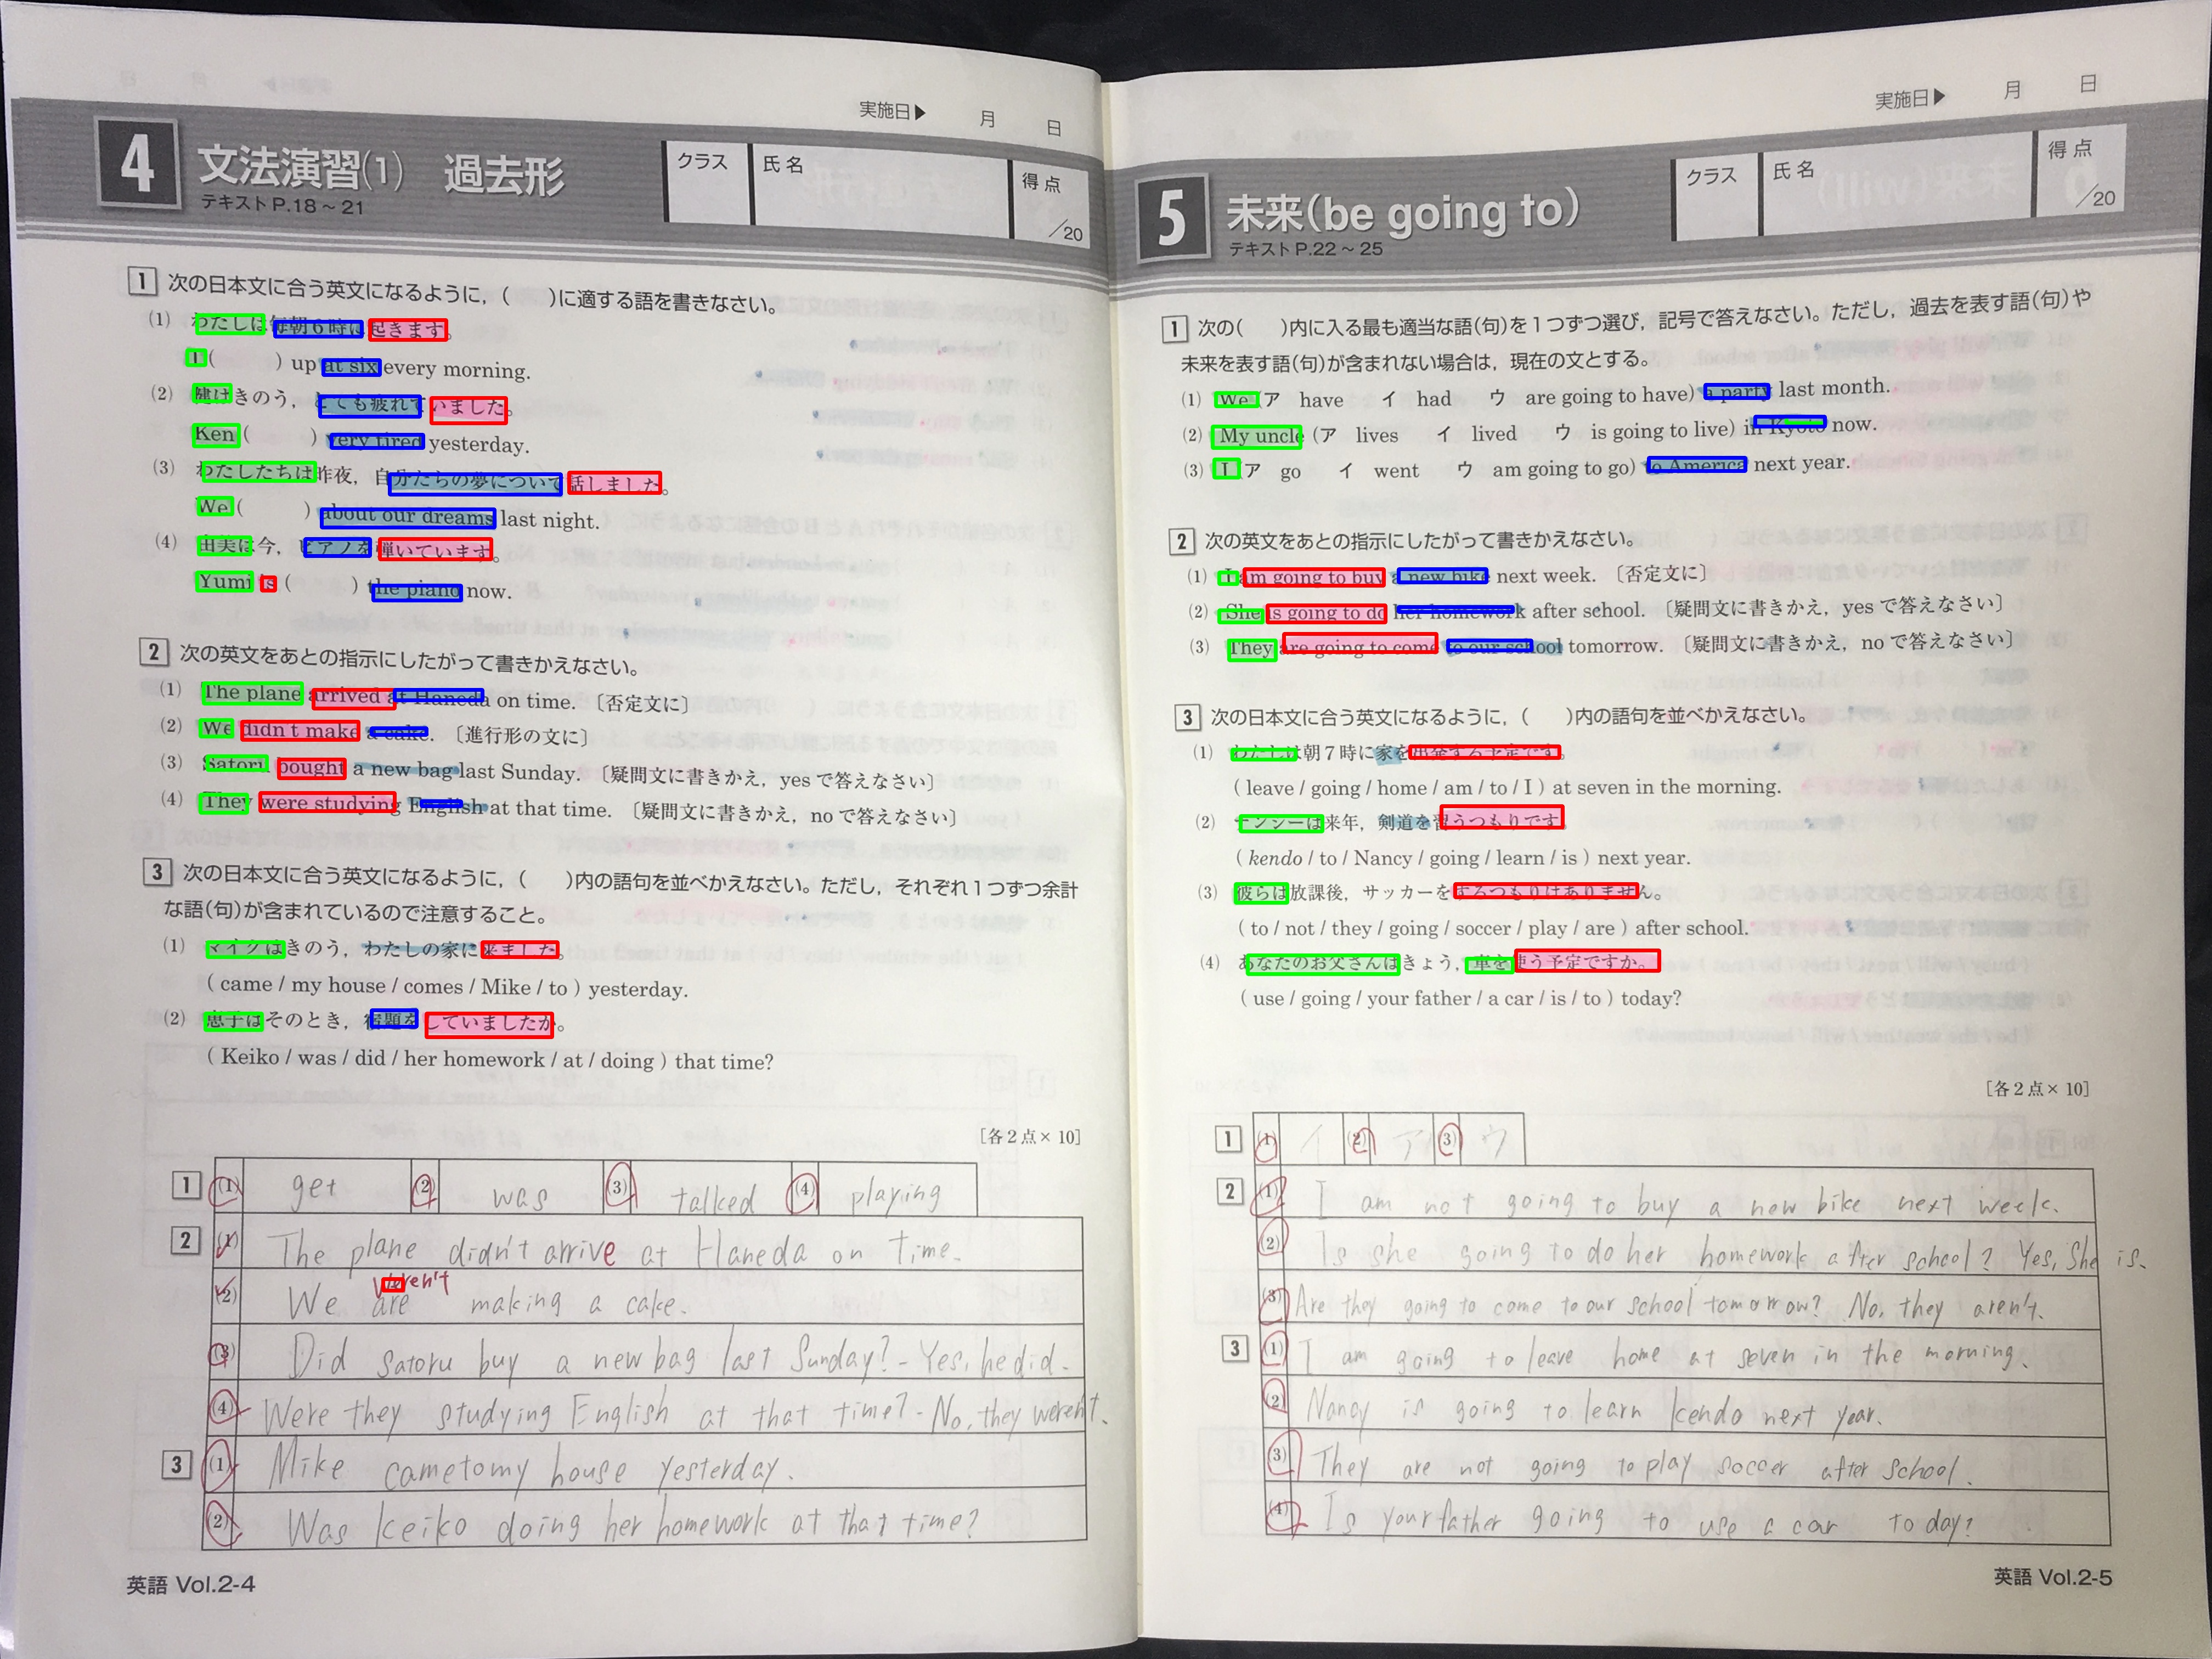 実施日▶ 月 日
4 文法演習(1) 過去形
テキストP.18～21
クラス 氏名 得点 /20
1 次の日本文に合う英文になるように，( )に適する語を書きなさい。
(1) わたしは毎朝6時に起きます。
I ( ) up at six every morning.
(2) 健はきのう，とても疲れていました。
Ken ( ) very tired yesterday.
(3) わたしたちは昨夜，自分たちの夢について話しました。
We ( ) about our dreams last night.
(4) 由美は今，ピアノを弾いています。
Yumi is ( ) the piano now.
2 次の英文をあとの指示にしたがって書きかえなさい。
(1) The plane arrived at Haneda on time. 〔否定文に〕
(2) We didn't make a cake. 〔進行形の文に〕
(3) Satoru bought a new bag last Sunday. 〔疑問文に書きかえ，yesで答えなさい〕
(4) They were studying English at that time. 〔疑問文に書きかえ，noで答えなさい〕
3 次の日本文に合う英文になるように，( )内の語句を並べかえなさい。ただし，それぞれ1つずつ余計
な語(句)が含まれているので注意すること。
(1) マイクはきのう，わたしの家に来ました。
( came / my house / comes / Mike / to ) yesterday.
(2) 恵子はそのとき，宿題をしていましたか。
( Keiko / was / did / her homework / at / doing ) that time?
[各2点×10]
1 (1) get (2) was (3) talked (4) playing
2 (1) The plane didn't arrive at Haneda on time.
weren't
(2) We are making a cake.
(3) Did satoru buy a new bag last Sunday? - Yes, he did.
(4) Were they studying English at that time? - No, they weren't.
3 (1) Mike came to my house yesterday.
(2) Was keiko doing her homework at that time?
英語 Vol.2-4
実施日▶ 月 日
5 未来(be going to)
テキストP.22～25
クラス 氏名 得点 /20
1 次の( )内に入る最も適当な語(句)を1つずつ選び，記号で答えなさい。ただし，過去を表す語(句)や
未来を表す語(句)が含まれない場合は，現在の文とする。
(1) We (ア have イ had ウ are going to have) a party last month.
(2) My uncle (ア lives イ lived ウ is going to live) in Kyoto now.
(3) I (ア go イ went ウ am going to go) to America next year.
2 次の英文をあとの指示にしたがって書きかえなさい。
(1) I am going to buy a new bike next week. 〔否定文に〕
(2) She is going to do her homework after school. 〔疑問文に書きかえ，yesで答えなさい〕
(3) They are going to come to our school tomorrow. 〔疑問文に書きかえ，noで答えなさい〕
3 次の日本文に合う英文になるように，( )内の語句を並べかえなさい。
(1) わたしは朝7時に家を出発する予定です。
( leave / going / home / am / to / I ) at seven in the morning.
(2) ナンシーは来年，剣道を習うつもりです。
( kendo / to / Nancy / going / learn / is ) next year.
(3) 彼らは放課後，サッカーをするつもりはありません。
( to / not / they / going / soccer / play / are ) after school.
(4) あなたのお父さんはきょう，車を使う予定ですか。
( use / going / your father / a car / is / to ) today?
[各2点×10]
1 (1) イ (2) ア (3) ウ
2 (1) I am not going to buy a new bike next week.
(2) Is she going to do her homework after school? Yes, She is.
(3) Are they going to come to our school tomorrow? No, they aren't.
3 (1) I am going to leave home at seven in the morning.
(2) Nancy is going to learn kendo next year.
(3) They are not going to play soccer after school.
(4) Is your father going to use a car today?
英語 Vol.2-5